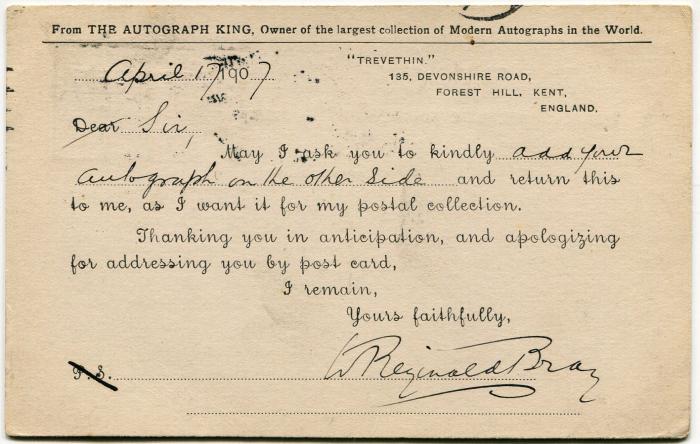 From THE AUTOGRAPH KING, Owner of the largest collection of Modern Autographs in the World.
"TREVETHIN."
April 17 1907
135, DEVONSHIRE ROAD,
FOREST HILL, KENT,
ENGLAND.
Dear Sir,
May I ask you to kindly add your
autograph on the other side and return this
to me, as I want it for my postal collection.
Thanking you in anticipation, and apologizing
for addressing you by post card,
I remain,
Yours faithfully,
W Reginald Bray
P. S.